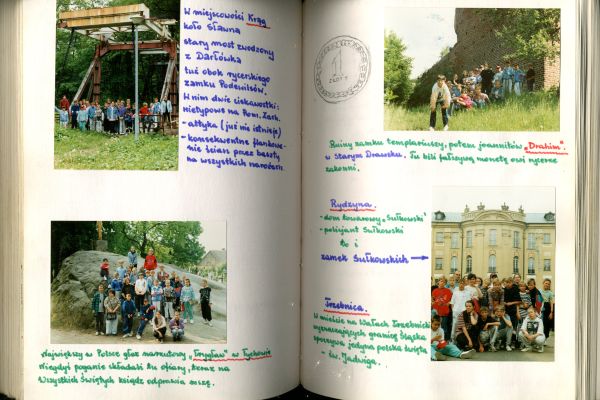 W miejscowości Krąg
koło Sławna
stary most zwodzony
z Darłówka
tuż obok rycerskiego
zamku Podewilsów.
W nim dwie ciekawostki:
nietypowe na Pom. Zach.
- attyka (już nie istnieje)
- konsekwentne flankowa-
nie ścian przez baszty
na wszystkich narożach.
Największy w Polsce głaz narzutowy "Trygław" w Tychowie
Niegdyś poganie składali tu ofiary, teraz na
Wszystkich Świętych ksiądz odprawia mszę.
1
ZŁOTY
Ruiny zamku templariuszy, potem joannitów "Drahim".
w Starym Drawsku. Tu bili fałszywą monetę owi rycerze
zakonni.
Rydzyna.
- dom towarowy "Sułkowski"
- policjant Sułkowski
to i
zamek Sułkowskich →
Trzebnica.
W mieście na Wałach Trzebnickich
wyznaczających granicę Śląska
spoczywa jedyna polska święta
- św. Jadwiga.